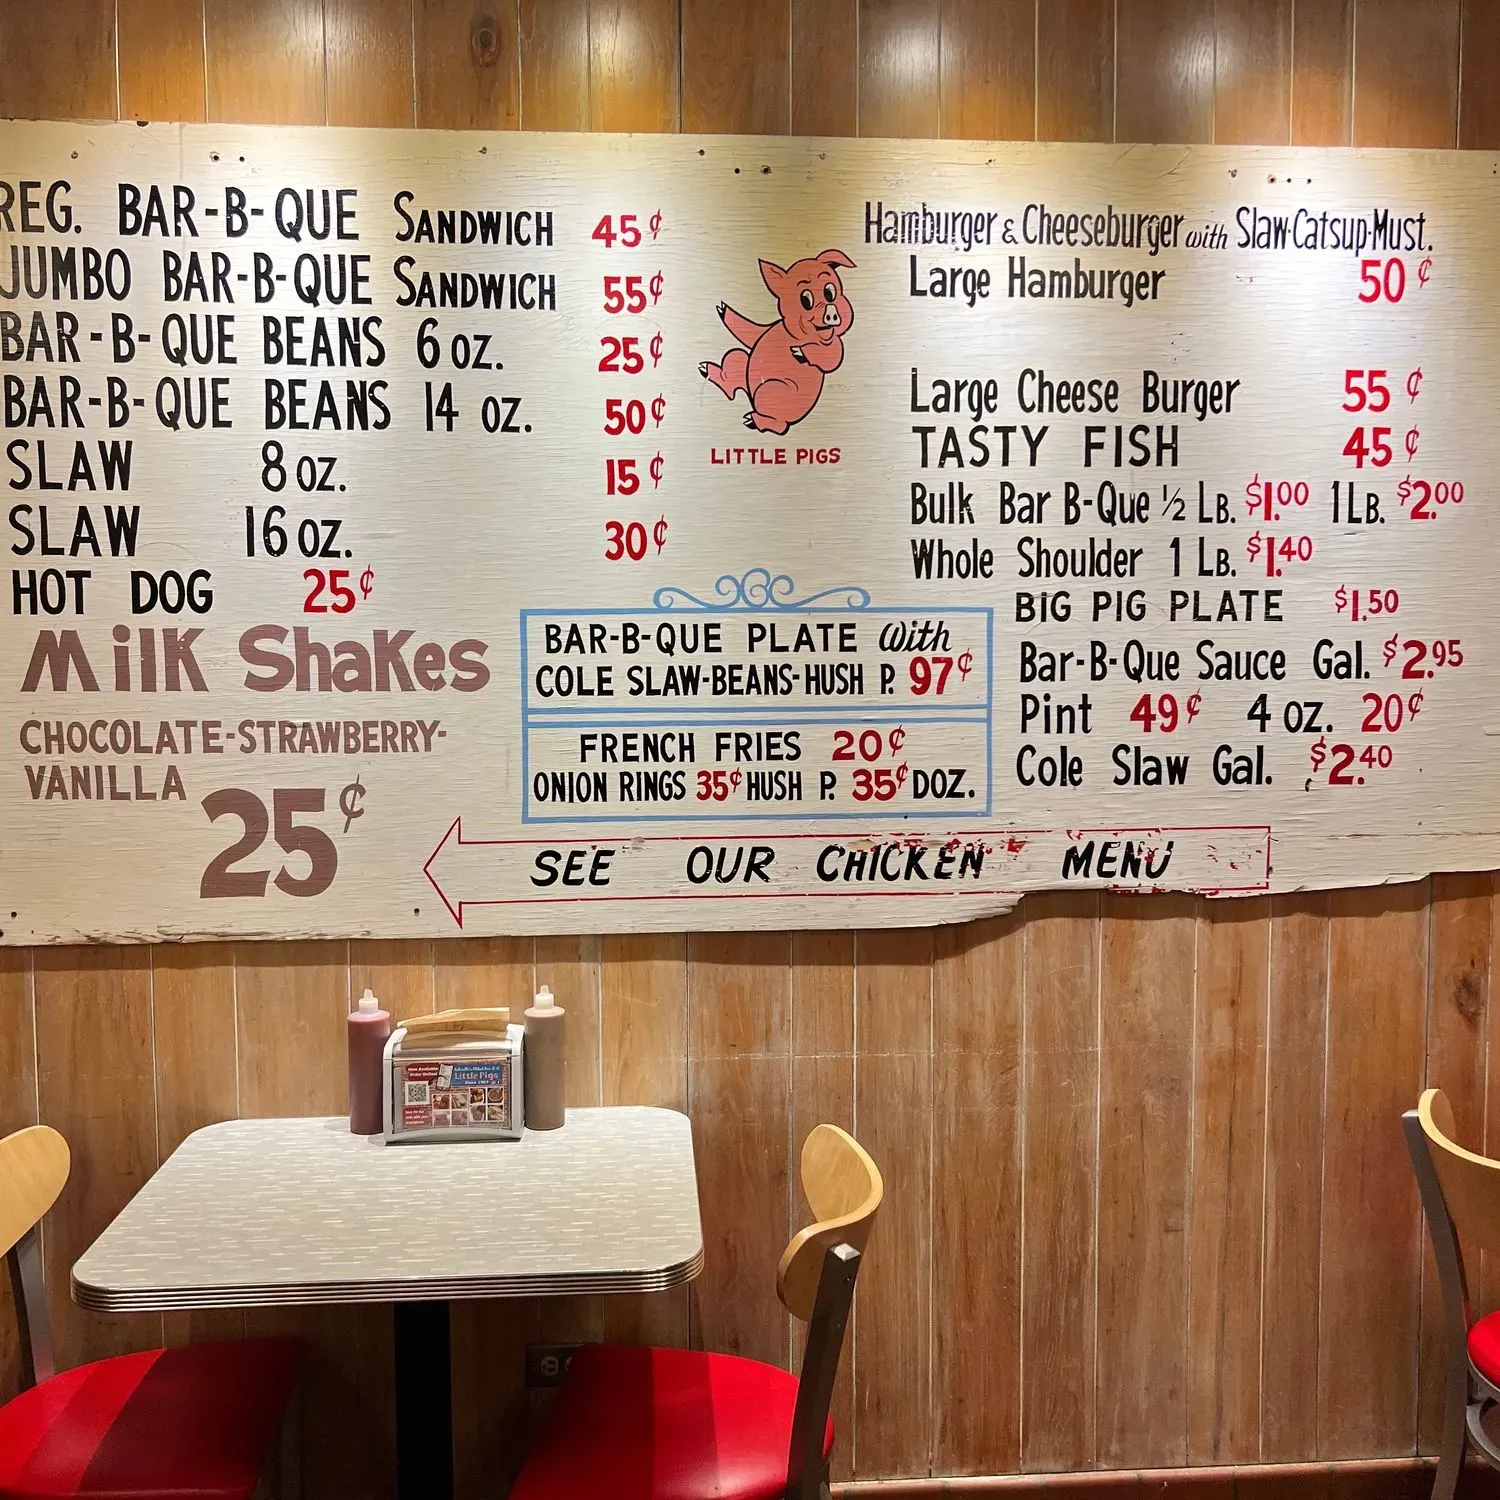 REG. BAR-B-QUE SANDWICH 45¢
JUMBO BAR-B-QUE SANDWICH 55¢
BAR-B-QUE BEANS 6 OZ. 25¢
BAR-B-QUE BEANS 14 OZ. 50¢
SLAW 8 OZ. 15¢
SLAW 16 OZ. 30¢
HOT DOG 25¢
Milk Shakes
CHOCOLATE-STRAWBERRY-
VANILLA
25¢
LITTLE PIGS
BAR-B-QUE PLATE With
COLE SLAW-BEANS-HUSH P. 97¢
FRENCH FRIES 20¢
ONION RINGS 35¢ HUSH P. 35¢ DOZ.
Hamburger & Cheeseburger with Slaw·Catsup·Must.
Large Hamburger 50¢
Large Cheese Burger 55¢
TASTY FISH 45¢
Bulk Bar B-Que ½ LB. $1.00 1 LB. $2.00
Whole Shoulder 1 LB. $1.40
BIG PIG PLATE $1.50
Bar-B-Que Sauce Gal. $2.95
Pint 49¢ 4 OZ. 20¢
Cole Slaw Gal. $2.40
SEE OUR CHICKEN MENU
Now Available
Order Online!
Little Pigs
Since 1963